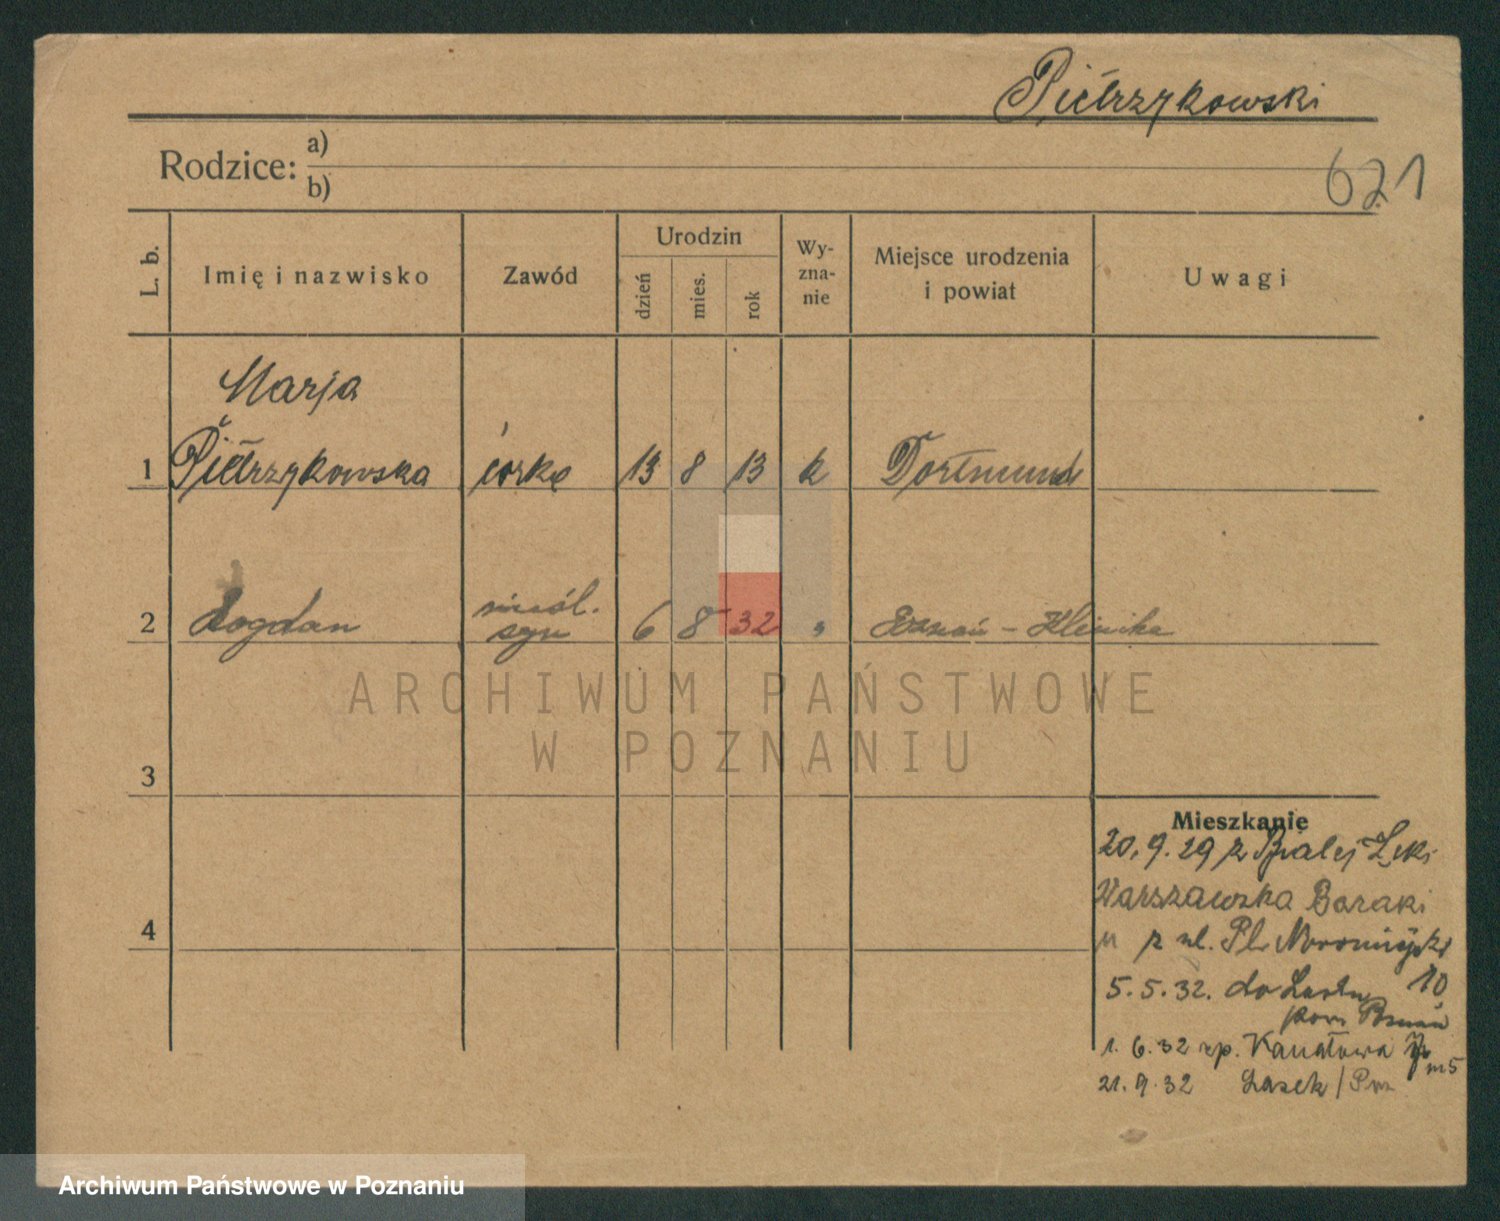 Pietrzykowski
Rodzice: a)
b)
621
L. b.
Imię i nazwisko
Zawód
Urodzin
dzień
mies.
rok
Wy-
zna-
nie
Miejsce urodzenia
i powiat
Uwagi
Marja
1 Pietrzykowska córka 13 8 13 k Dortmund
nieśl.
2 Bogdan syn 6 8 32 " Poznań - Klinika
ARCHIWUM PAŃSTWOWE
W POZNANIU
3
Mieszkanie
20.9.29 z Białej
Warszawska Baraki
4
z ul. Pl.
10
5.5.32. do
pow. Poznań
1.6.32 Kanałowa
m5
21.9.32 Lasek /
Archiwum Państwowe w Poznaniu